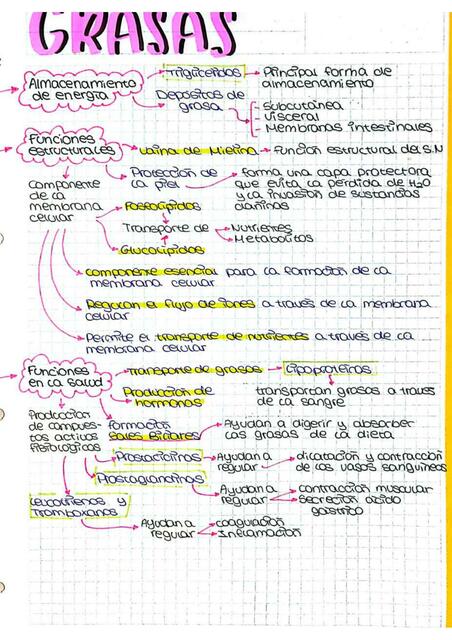 GRASAS
Almacenamiento de energía
Triglicéridos
Principal forma de almacenamiento
Depósitos de grasa
- subcutánea
- visceral
- Membranas intestinales
Funciones estructurales
Vaina de Mielina
función estructural del S.N
Protección de la piel
forma una capa protectora
que evita la pérdida de H2O
y la invasión de sustancias
dañinas
componente
de la
membrana
celular
Fosfolípidos
Transporte de
Nutrientes
Metabolitos
Glucolípidos
componente esencial para la formación de la
membrana celular
Regulan el flujo de iones a través de la membrana
celular
Permite el transporte de nutrientes a través de la
membrana celular
Funciones
en la salud
Transporte de grasas
Lipoproteínas
transportan grasas a través
de la sangre
Producción de
hormonas
Producción
de compues-
tos activos
fisiológicos
formación
sales biliares
Ayudan a digerir y absorber
las grasas de la dieta
Prostaciclinas
Ayudan a
regular
dilatación y contracción
de los vasos sanguíneos
Prostaglandinas
Ayudan a
regular
contracción muscular
secreción ácido
gástrico
Leucotrienos y
Tromboxanos
Ayudan a
regular
coagulación
Inflamación